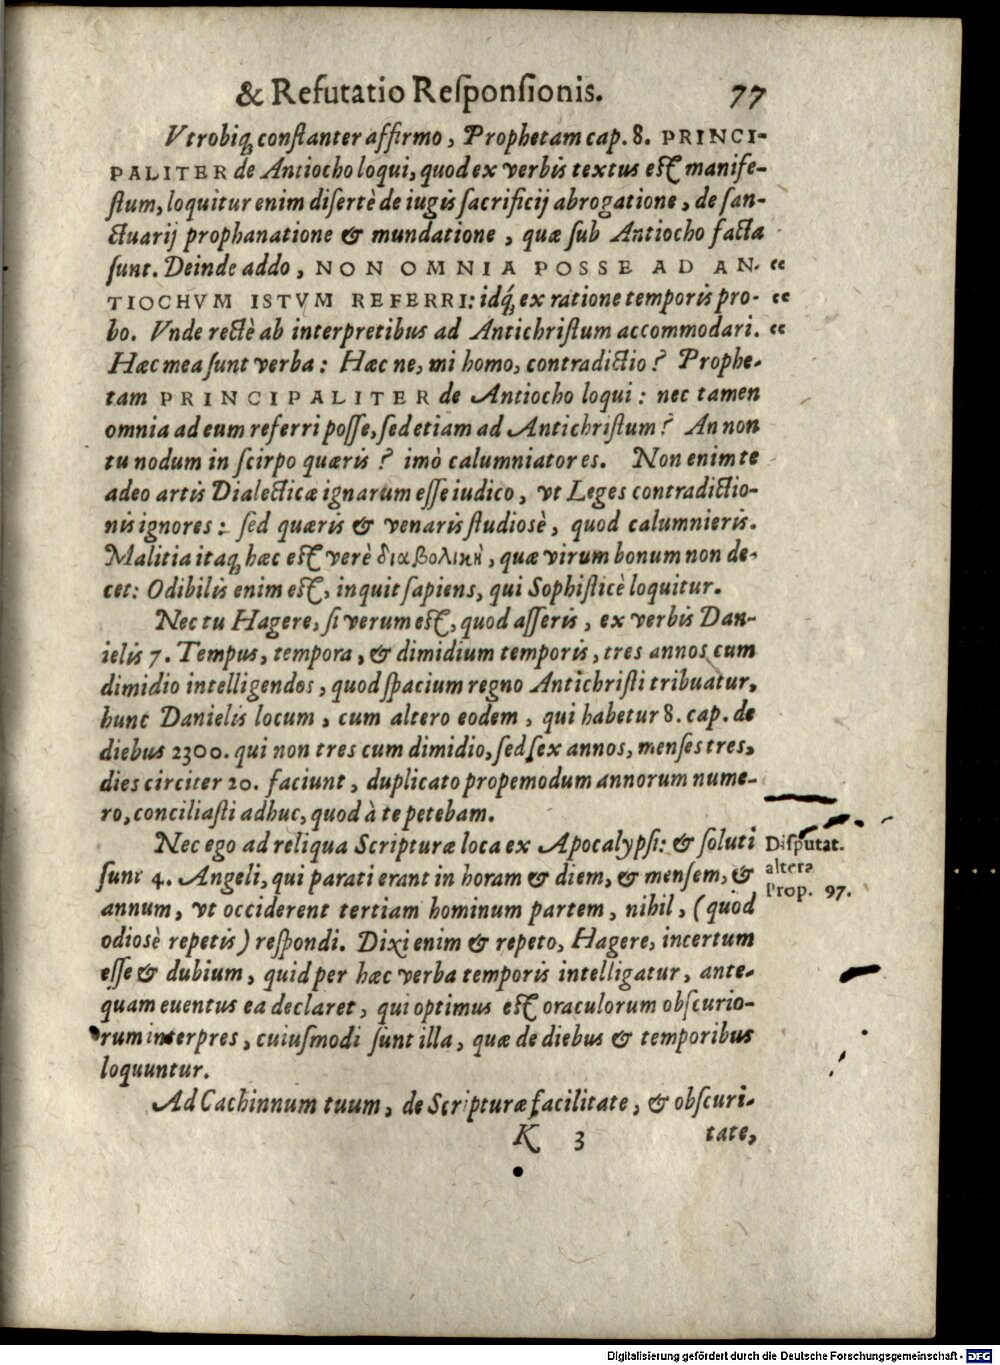 & Refutatio Reſponſionis. 77
Vtrobiq; conſtanter affirmo, Prophetam cap. 8. PRINCI-
PALITER de Antiocho loqui, quod ex verbis textus eſt manife-
ſtum, loquitur enim diſertè de iugis ſacrificij abrogatione, de ſan-
ctuarij prophanatione & mundatione, quæ ſub Antiocho facta
ſunt. Deinde addo, NON OMNIA POSSE AD AN- “
TIOCHVM ISTVM REFERRI: idq́; ex ratione temporis pro- “
bo. Vnde rectè ab interpretibus ad Antichriſtum accommodari. “
Hæc mea ſunt verba: Hæc ne, mi homo, contradictio? Prophe-
tam PRINCIPALITER de Antiocho loqui: nec tamen
omnia ad eum referri poſſe, ſed etiam ad Antichriſtum? An non
tu nodum in ſcirpo quæris? imò calumniatores. Non enim te
adeo artis Dialecticæ ignarum eſſe iudico, vt Leges contradictio-
nis ignores: ſed quæris & venaris ſtudiosè, quod calumnieris.
Malitia itaq; hæc eſt verè διαβολικὴ, quæ virum bonum non de-
cet: Odibilis enim eſt, inquit ſapiens, qui Sophiſticè loquitur.
Nec tu Hagere, ſi verum eſt, quod aſſeris, ex verbis Dan-
ielis 7. Tempus, tempora, & dimidium temporis, tres annos cum
dimidio intelligendos, quod ſpacium regno Antichriſti tribuatur,
hunc Danielis locum, cum altero eodem, qui habetur 8. cap. de
diebus 2300. qui non tres cum dimidio, ſed ſex annos, menſes tres,
dies circiter 20. faciunt, duplicato propemodum annorum nume-
ro, conciliaſti adhuc, quod à te petebam.
Nec ego ad reliqua Scripturæ loca ex Apocalypſi: & ſoluti
ſunt 4. Angeli, qui parati erant in horam & diem, & menſem, &
annum, vt occiderent tertiam hominum partem, nihil, (quod
odiosè repetis) reſpondi. Dixi enim & repeto, Hagere, incertum
eſſe & dubium, quid per hæc verba temporis intelligatur, ante-
quam euentus ea declaret, qui optimus eſt oraculorum obſcurio-
rum interpres, cuiuſmodi ſunt illa, quæ de diebus & temporibus
loquuntur.
Diſputat.
altera
Prop. 97.
Ad Cachinnum tuum, de Scripturæ facilitate, & obſcuri-
K 3 tate,
Digitalisierung gefördert durch die Deutsche Forschungsgemeinschaft - DFG